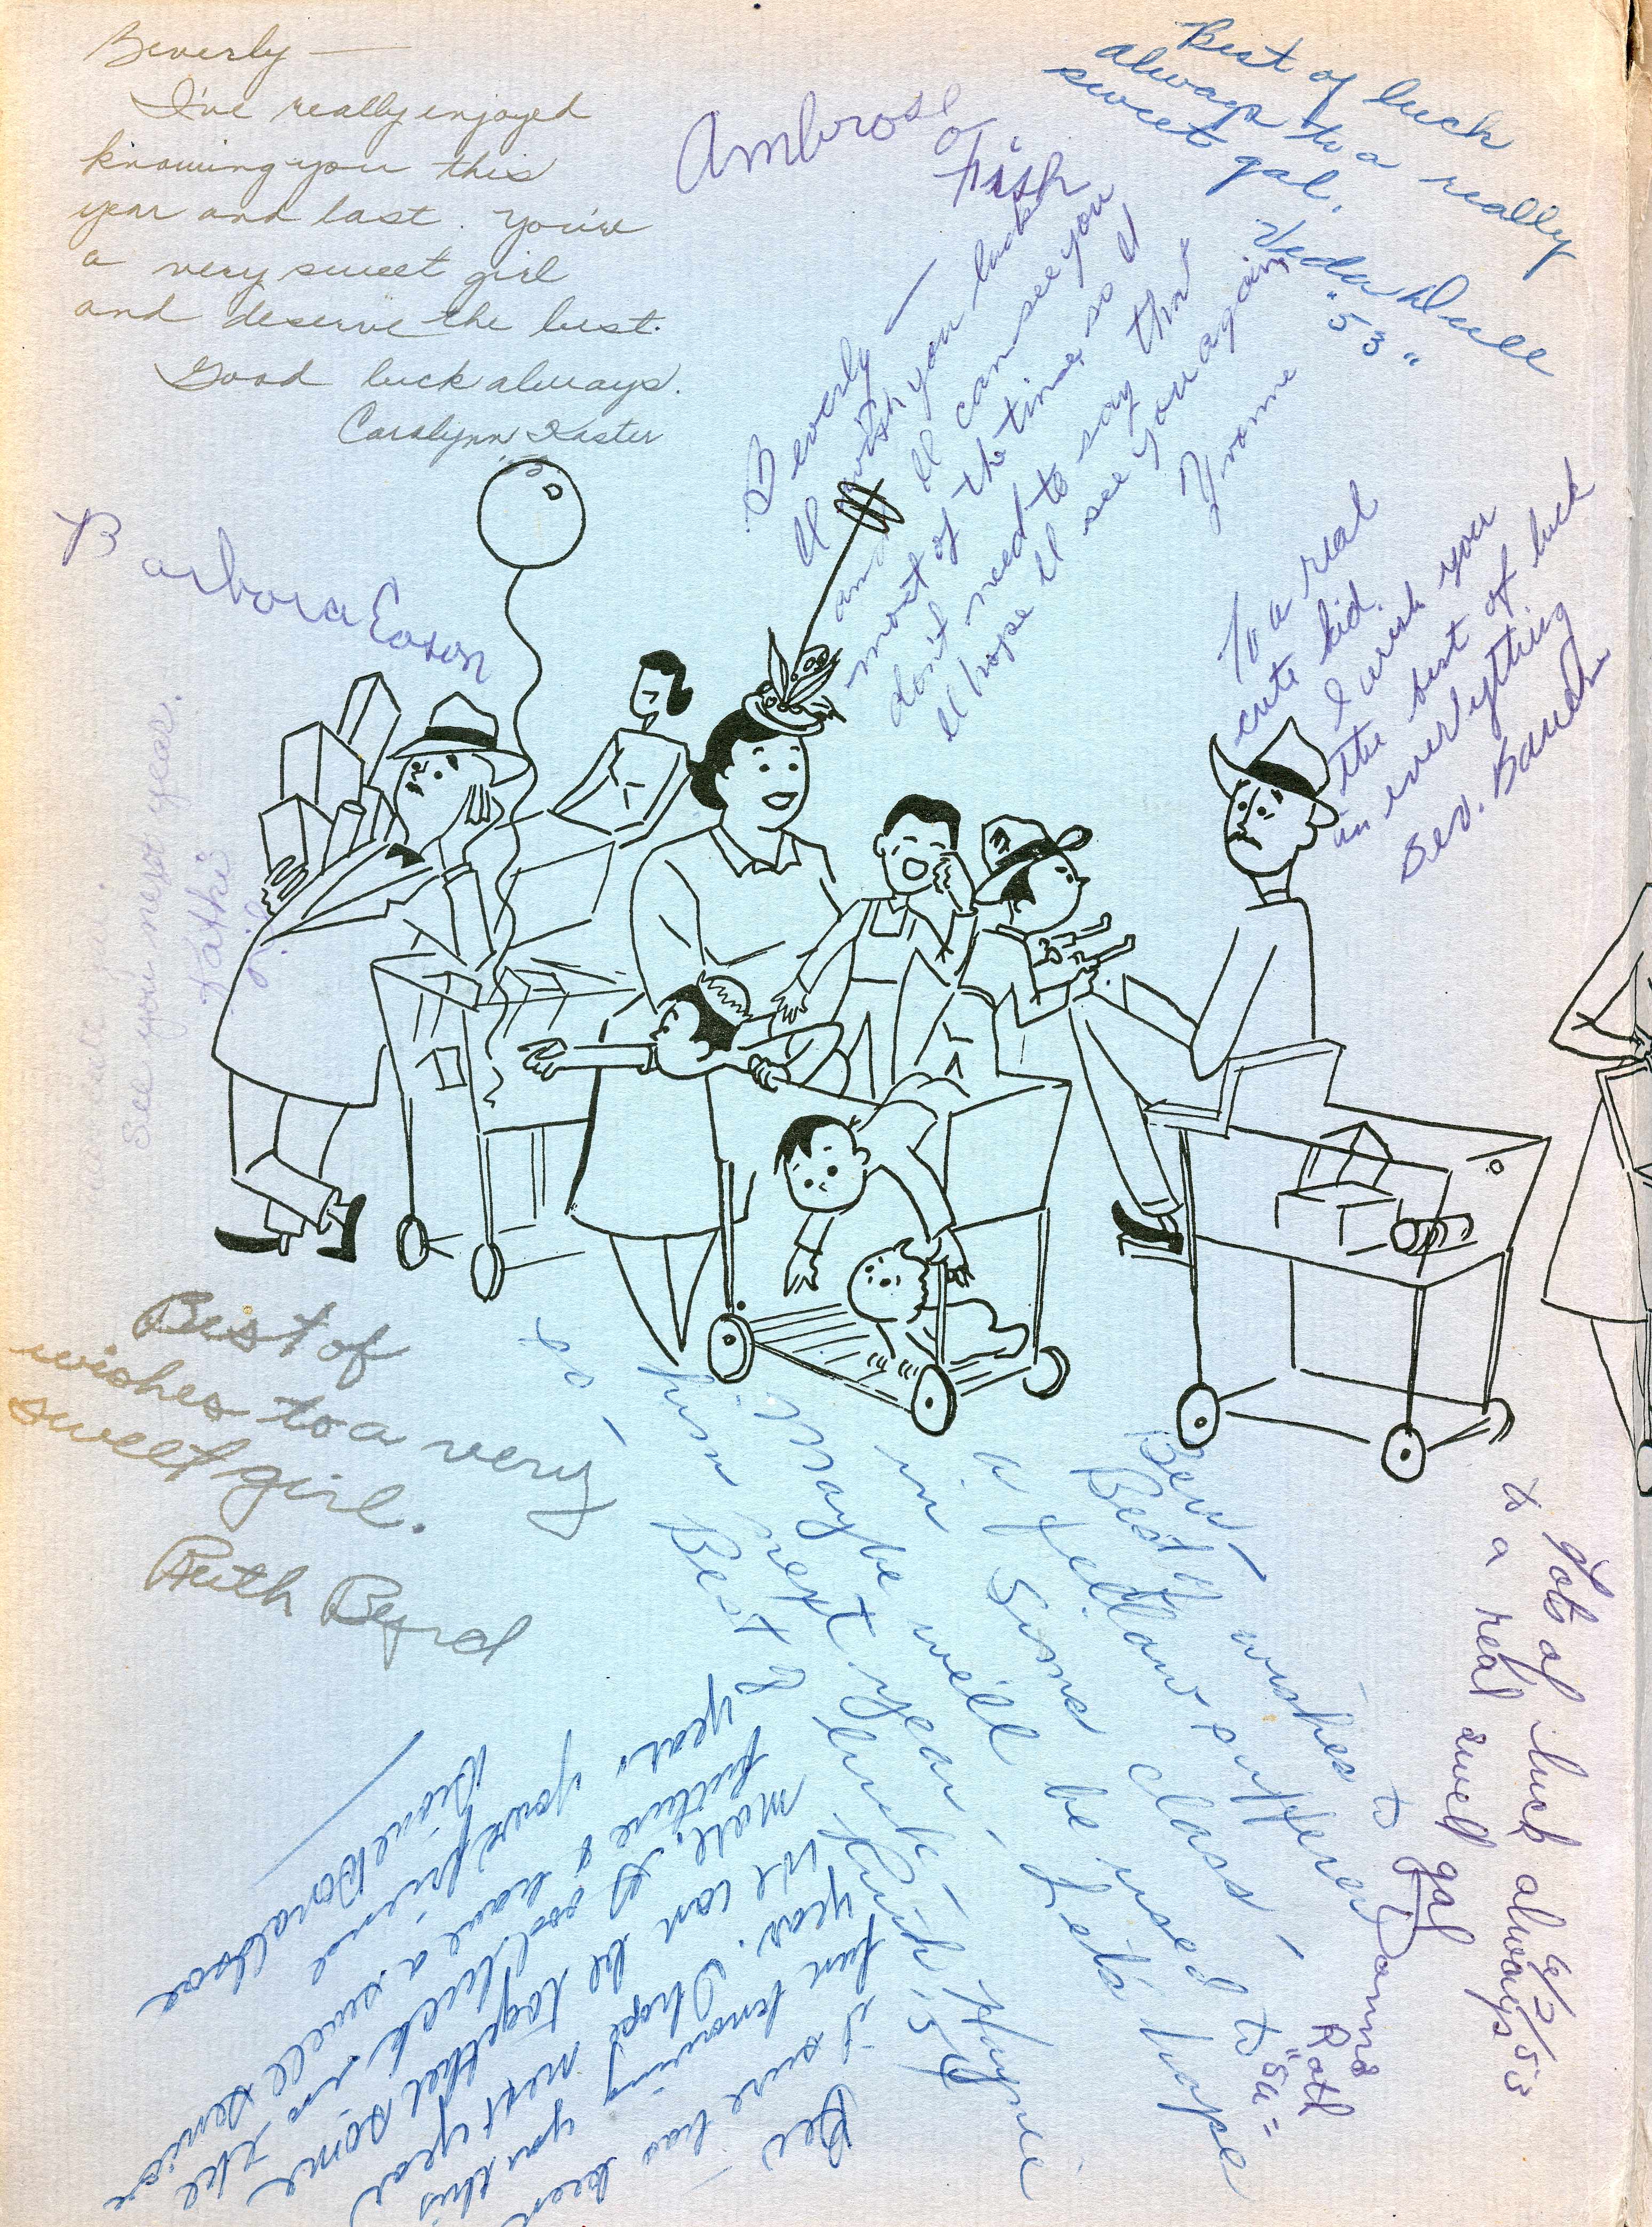 Beverly —
I've really enjoyed
knowing you this
year and last. You're
a very sweet girl
and deserve the best.
Good luck always.
Carolynn Kaster
Ambrose
O
Fish
Best of luck
always to a really
sweet gal.
Veda Dull
"53"
Beverly —
I wish you luck
and I can see you
most of the time, so I
don't need to say that
I hope I see you again
Yvonne
Barbara Eason
To a real
cute kid.
I wish you
the best of luck
in everything
Bev. Bauch
See you next year.
Kathie
Best of
wishes to a very
sweet girl.
Ruth Byrd
Bev —
Best wishes to
a fellow sufferer
in Simms class —
Maybe we'll be used to
him next year — Let's hope
so —
Best of luck
Ruth
6/2/53
Lots of luck always
to a real swell gal
Donna
Roth
"54"
Bev
it sure has been
fun knowing you this
year. I hope next year
we can be together some
more. Good luck in the
future & have a swell senior
year. your friend
Dione Donaldson